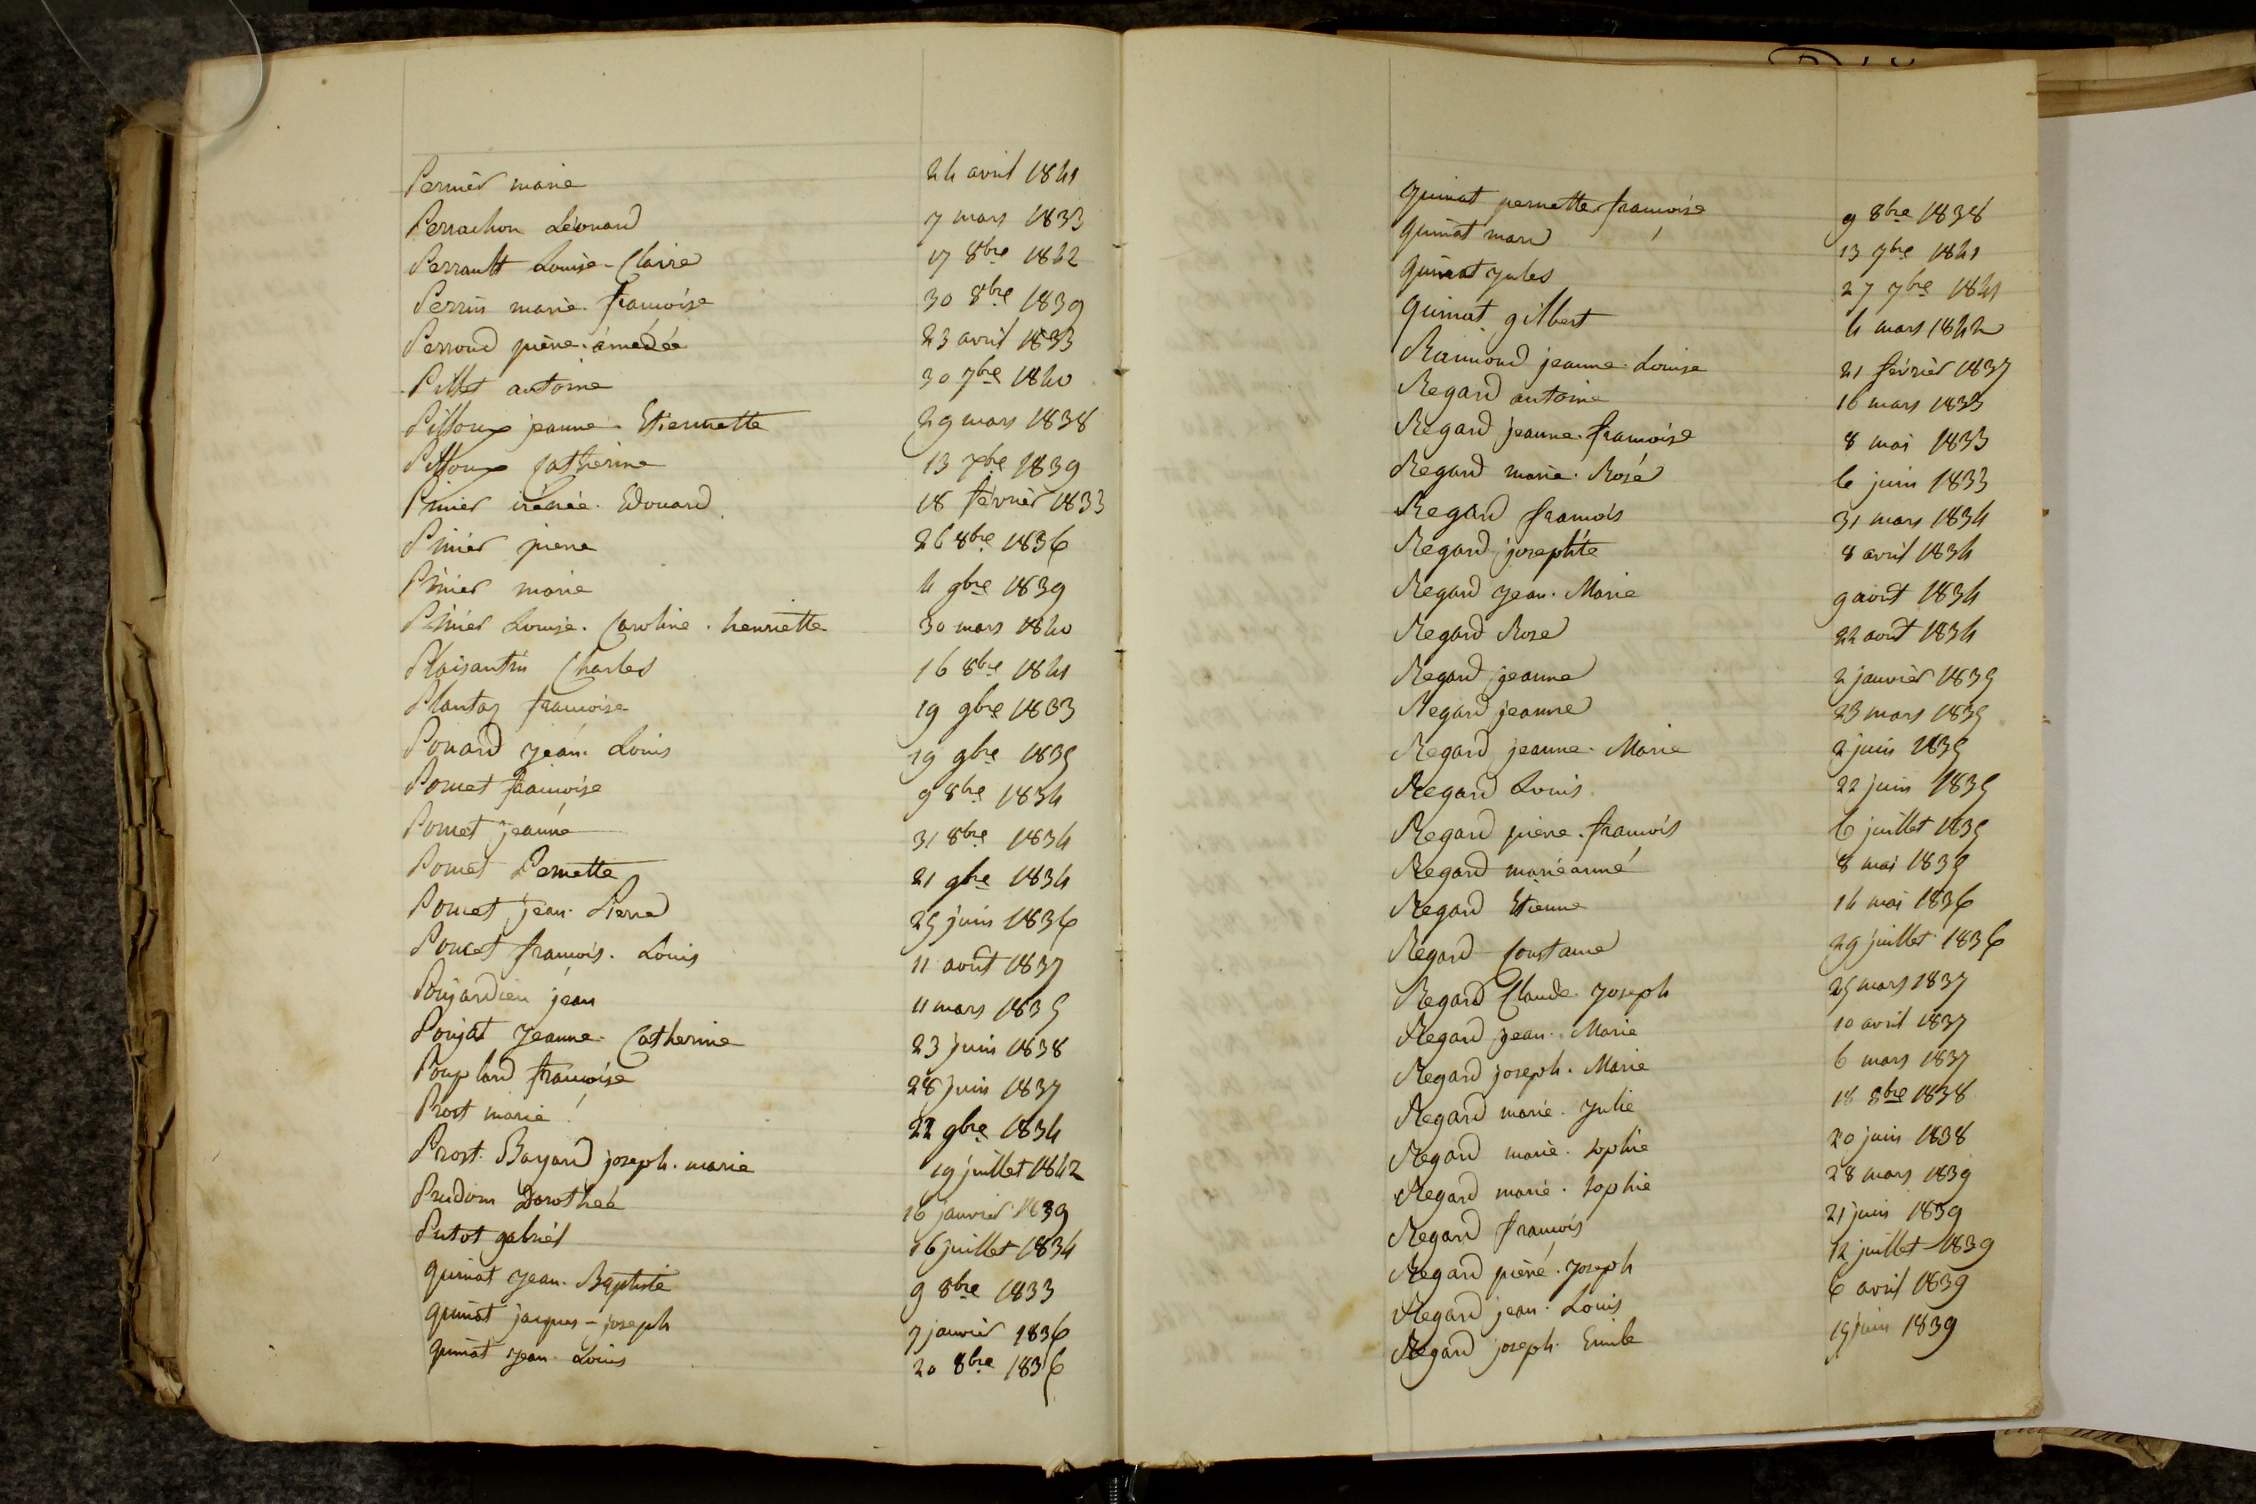 Pernier marie 24 avril 1841
Perrachon Léonard 7 mars 1833
Perrault Louise-Claire 17 8bre 1842
Perrin marie françoise 30 8bre 1839
Perroud pierre amédée 23 avril 1833
Pillet antoine 30 7bre 1840
Pilloux jeanne Etiennette 29 mars 1838
Pilloux Catherine 13 Xbre 1839
Pinier irénée Edouard 18 février 1833
Pinier pierre 26 8bre 1836
Pinier marie 4 9bre 1839
Pinier Louise Caroline henriette 30 mars 1840
Plaisantin Charles 16 8bre 1841
Plantaz françoise 19 9bre 1833
Ponard jean Louis 19 9bre 1835
Poncet françoise 9 8bre 1834
Poncet jeanne 31 8bre 1834
Poncet Pernette 21 9bre 1834
Poncet jean Pierre 25 juin 1836
Poncet françois Louis 11 août 1837
Poujardieu jean 11 mars 1835
Poujat Jeanne Catherine 23 juin 1838
Pouplard françoise 28 juin 1837
Prost marie 22 9bre 1834
Prost Bayard joseph marie 19 juillet 1842
Prudom Dorothée 16 janvier 1839
Putot gabriel 16 juillet 1834
quinat jean Baptiste 9 8bre 1833
quinat jacques-joseph 7 janvier 1836
quinat jean Louis 20 8bre 1836
quinat pernette françoise 9 8bre 1838
quinat marie 13 7bre 1841
quinat jules 27 7bre 1841
quinat gilbert 4 mars 1842
Raimond jeanne Louise 21 février 1837
Regard antoine 16 mars 1833
Regard jeanne françoise 8 mai 1833
Regard marie Rose 6 juin 1833
Regard françois 31 mars 1834
Regard josephte 8 avril 1834
Regard jean Marie 9 août 1834
Regard Rose 22 août 1834
Regard jeanne 2 janvier 1835
Regard jeanne 23 mars 1835
Regard jeanne Marie 2 juin 1835
Regard Louis 22 juin 1835
Regard pierre françois 6 juillet 1835
Regard marieanne 8 mai 1835
Regard Etienne 14 mai 1836
Regard Constance 29 juillet 1836
Regard Claude joseph 25 mars 1837
Regard jean Marie 10 avril 1837
Regard joseph Marie 6 mars 1837
Regard marie julie 18 8bre 1838
Regard marie sophie 20 juin 1838
Regard marie sophie 28 mars 1839
Regard françois 21 juin 1839
Regard pierre joseph 12 juillet 1839
Regard jean Louis 6 avril 1839
Regard joseph Emile 15 juin 1839